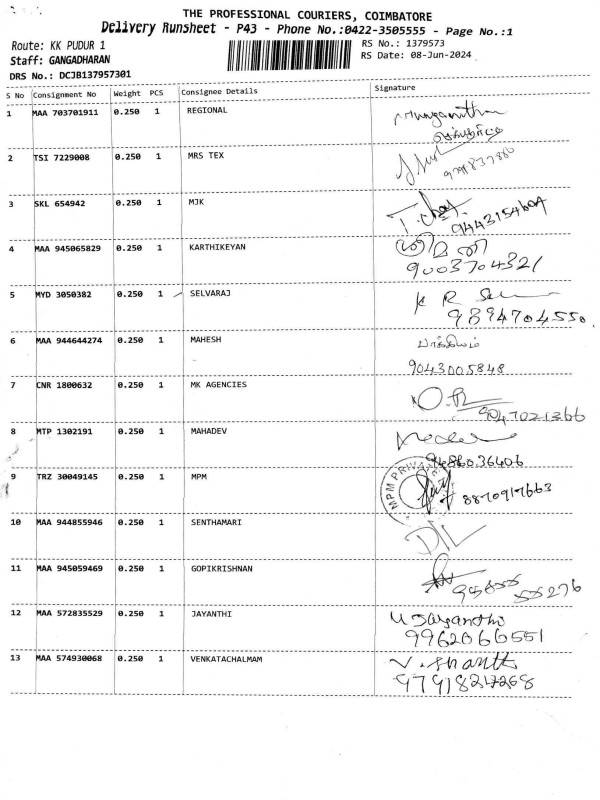 THE PROFESSIONAL COURIERS, COIMBATORE
Delivery Runsheet - P43 - Phone No.:0422-3505555 - Page No.:1
Route: KK PUDUR 1
RS No.: 1379573
Staff: GANGADHARAN
RS Date: 08-Jun-2024
DRS No.: DCJB137957301
S No Consignment No Weight PCS Consignee Details Signature
1 MAA 703701911 0.250 1 REGIONAL
2 TSI 7229008 0.250 1 MRS TEX
3 SKL 654942 0.250 1 MJK
9443154604
4 MAA 945065829 0.250 1 KARTHIKEYAN
9003704321
5 MYD 3050382 0.250 1 SELVARAJ
K R
9894704550
6 MAA 944644274 0.250 1 MAHESH
9043005848
7 CNR 1800632 0.250 1 MK AGENCIES
9047021366
8 MTP 1302191 0.250 1 MAHADEV
9486036406
9 TRZ 30049145 0.250 1 MPM
MPM PRIVATE
8870917663
10 MAA 944855946 0.250 1 SENTHAMARI
11 MAA 945059469 0.250 1 GOPIKRISHNAN
55276
12 MAA 572835529 0.250 1 JAYANTHI
U Jayanthi
9962066551
13 MAA 574930068 0.250 1 VENKATACHALMAM